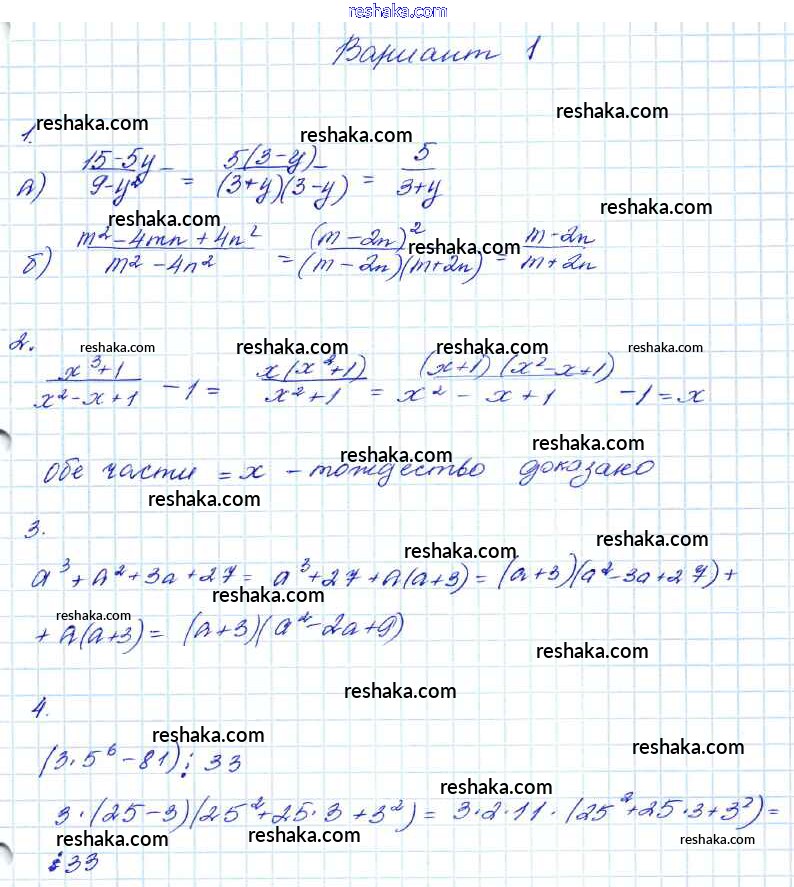 reshaka.com
Вариант 1
reshaka.com
1.
reshaka.com
а) (15-5y)/(9-y²) = 5(3-y)/((3+y)(3-y)) = 5/(3+y)
reshaka.com
reshaka.com
б) (m²-4mn+4n²)/(m²-4n²) = (m-2n)²/((m-2n)(m+2n)) = (m-2n)/(m+2n)
reshaka.com
2.
reshaka.com reshaka.com reshaka.com
(x³+1)/(x²-x+1) -1 = x(x²+1)/(x²+1) = (x+1)(x²-x+1)/(x²-x+1) -1 = x
reshaka.com
reshaka.com
обе части = x - тождество доказано
reshaka.com
3.
reshaka.com
reshaka.com
a³+a²+3a+27 = a³+27+a(a+3) = (a+3)(a²-3a+27)+
reshaka.com
reshaka.com
+a(a+3) = (a+3)(a²-2a+9)
reshaka.com
reshaka.com
4.
reshaka.com
reshaka.com
(3·5⁶-81)⋮33
reshaka.com
3·(25-3)(25²+25·3+3²) = 3·2·11·(25²+25·3+3²) =
reshaka.com reshaka.com reshaka.com
⋮33